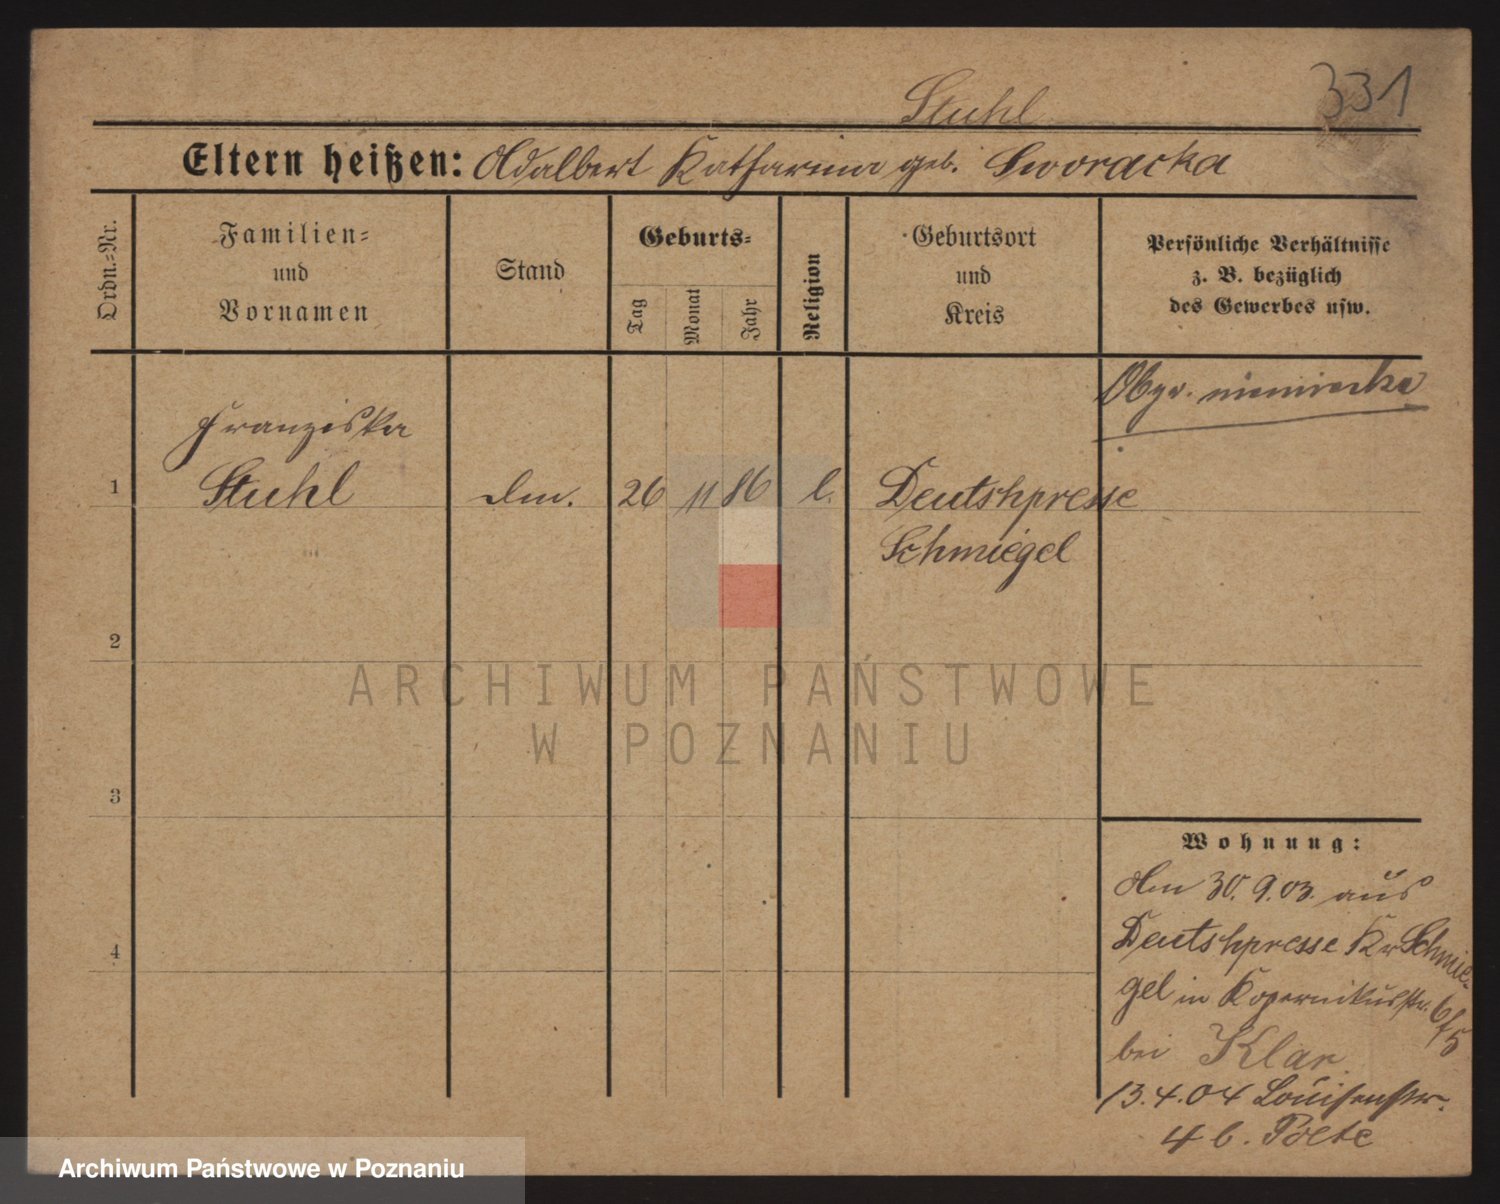 331
Stuhl
Eltern heißen: Adalbert Katharina geb. Sworacka
Ordn.-Nr.
Familien-
und
Vornamen
Stand
Geburts-
Tag
Monat
Jahr
Religion
Geburtsort
und
Kreis
Persönliche Verhältnisse
z. B. bezüglich
des Gewerbes usw.
Obyw. niemiecka
1
Franziska
Stuhl
26
11
86
Deutshpresse
Schmiegel
2
3
4
Wohnung:
30.9.03. aus
Deutshpresse Kr Schmie-
gel in Kopernikusstr. 6/5
bei Klar
13.4.04 Louisenstr.
4 b.
ARCHIWUM PAŃSTWOWE
W POZNANIU
Archiwum Państwowe w Poznaniu